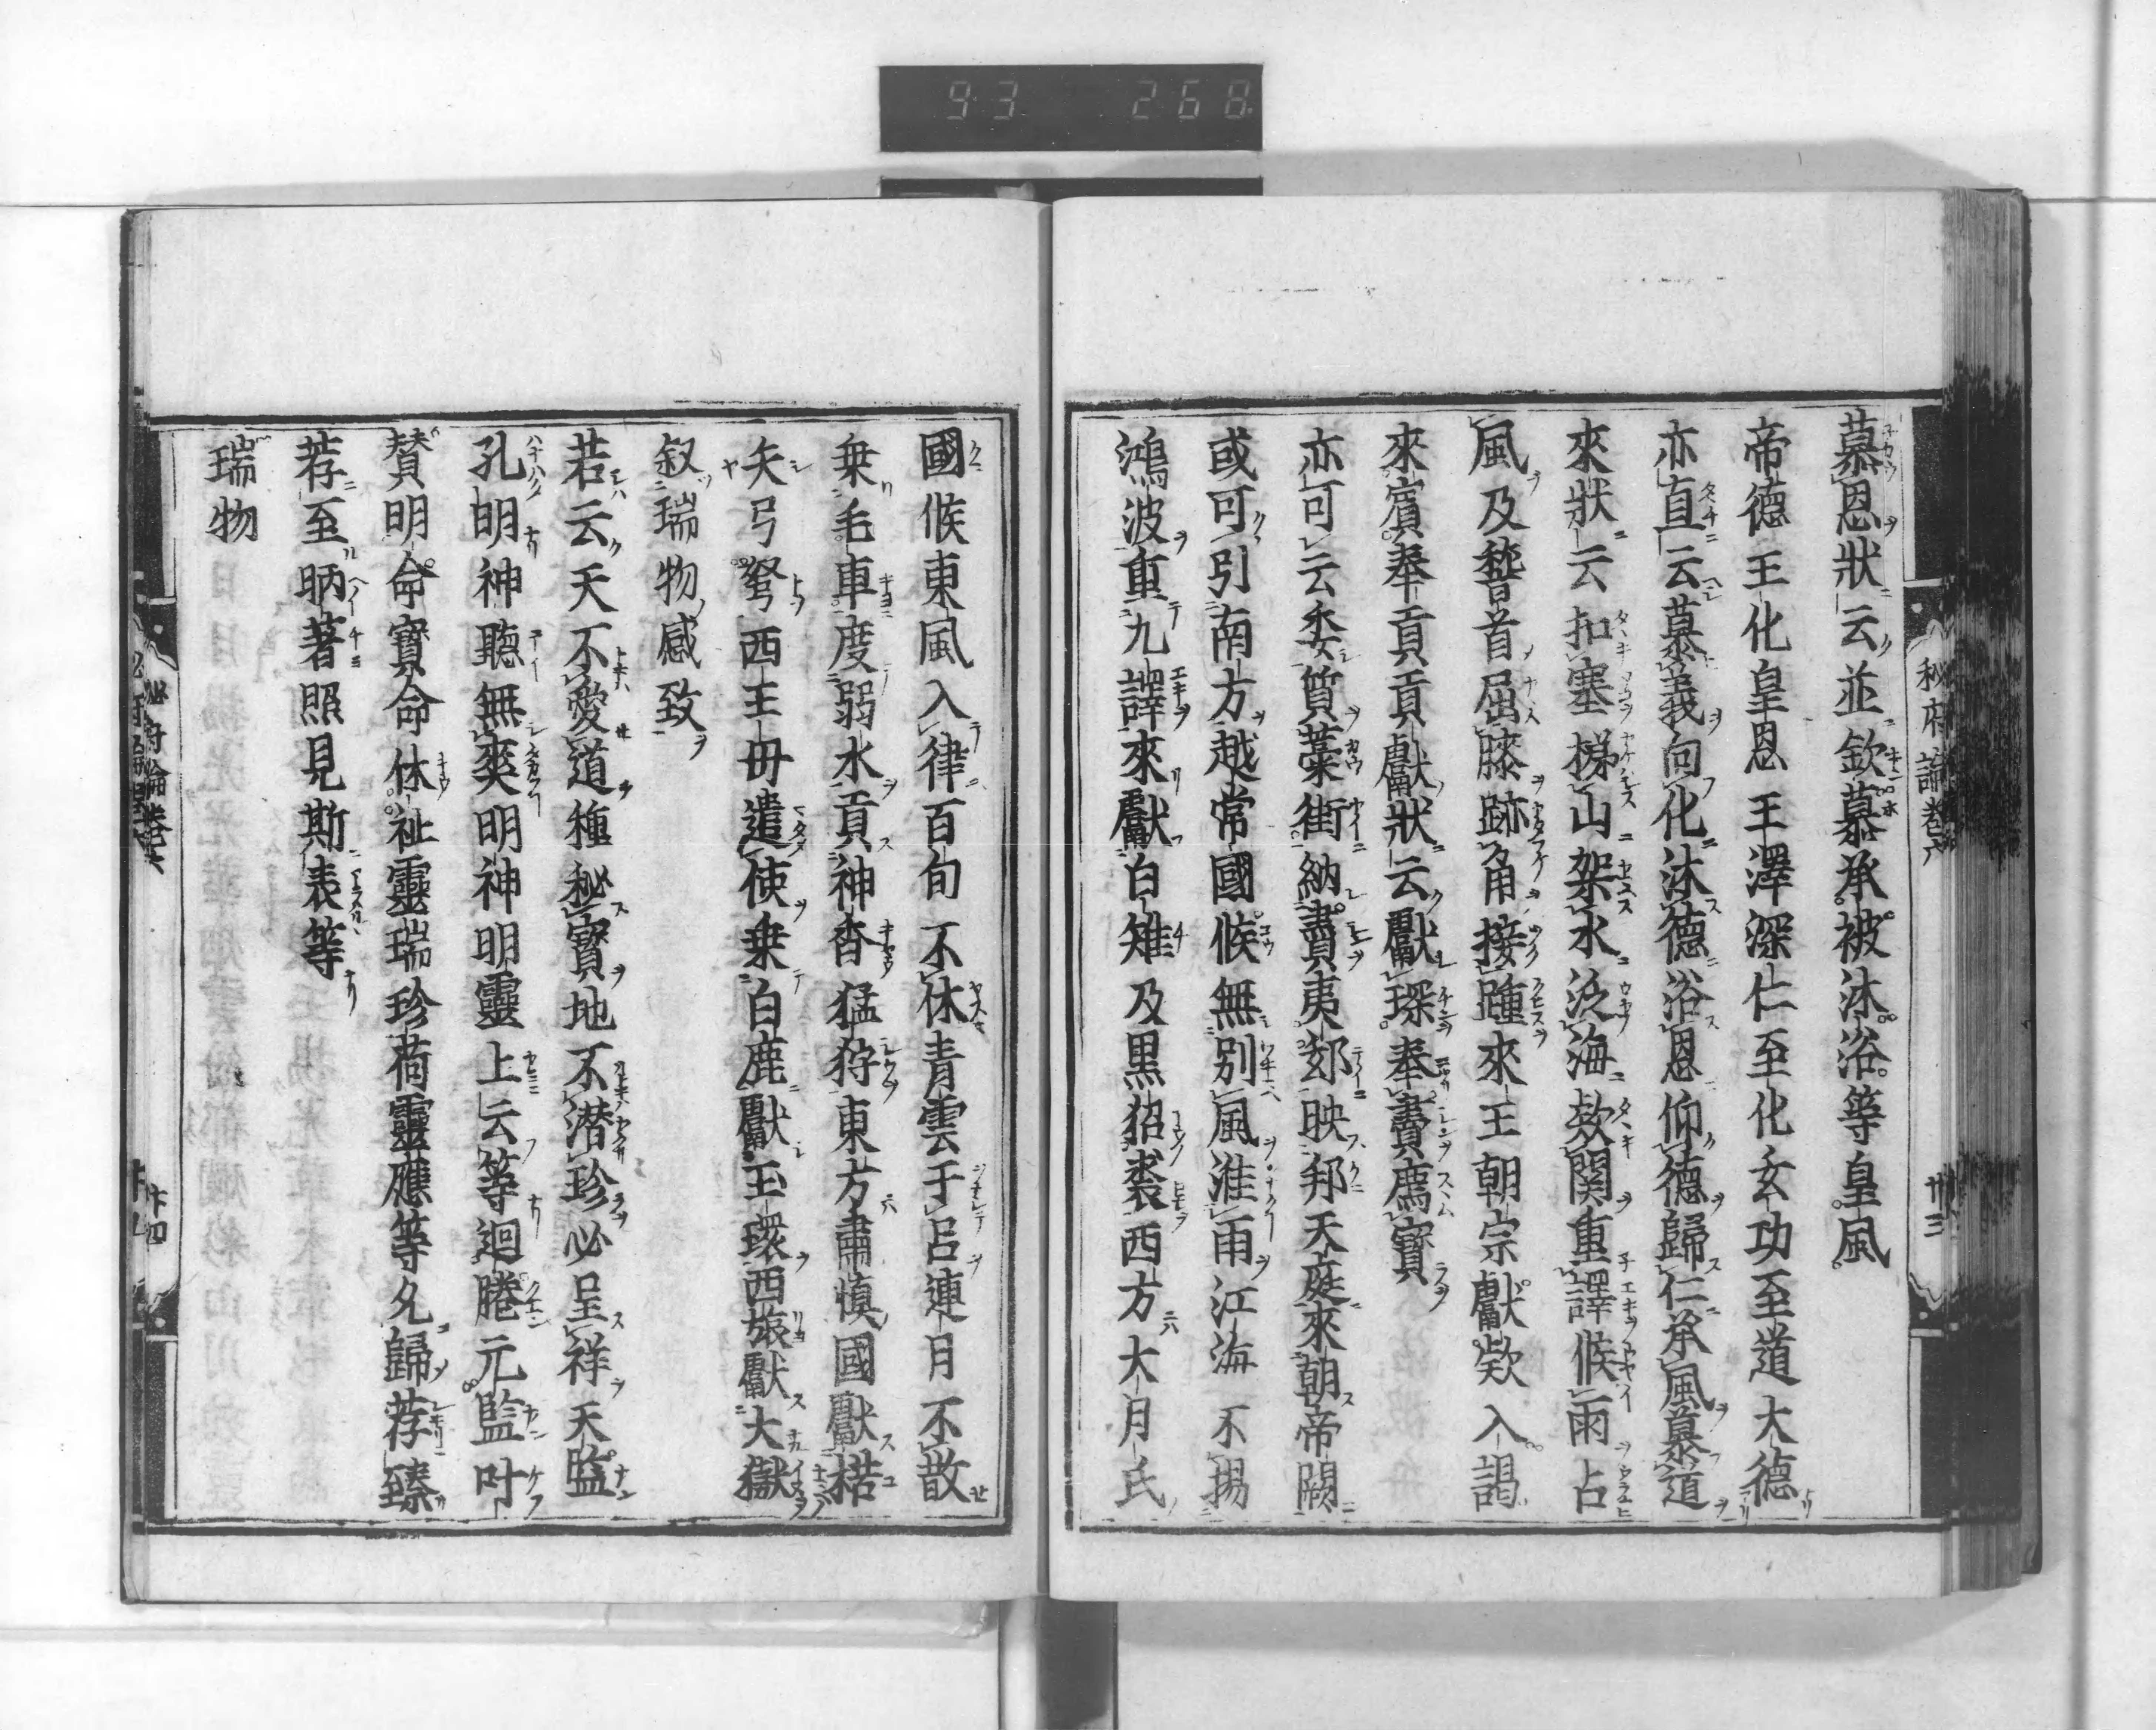 93 268
秘府論卷六
廿三
慕恩狀云並欽慕承被沐浴等皇風
帝德王化皇恩王澤深仁至化玄功至道大德
亦直云慕義向化沐德浴恩仰德歸仁承風慕道
來狀云扣塞梯山架水泛海欵関重譯候雨占
風及稽首屈膝跡角接踵來王朝宗獻欵入謁
來賓奉貢貢獻狀云獻琛奉賮薦寶
亦可云委質藁街納賮夷邸映邦天庭來朝帝闕
或可引南方越常國候無別風淮雨江海不揚
鴻波重九譯來獻白雉及黒貂裘西方大月氏
國候東風入律百旬不休青雲于呂連月不散
乗毛車度弱水貢神香猛狩東方肅慎國獻楛
矢弓弩西王毋遣使乗白鹿獻玉環西旅獻大獄
叙瑞物感致
若云天不愛道種秘寳地不潜珍必呈祥天監
孔明神聽無爽明神明靈上云等迴睠元監叶
賛明命寳命休祉靈瑞珍荷靈應等允歸荐臻
荐至昞著照見斯表等
瑞物